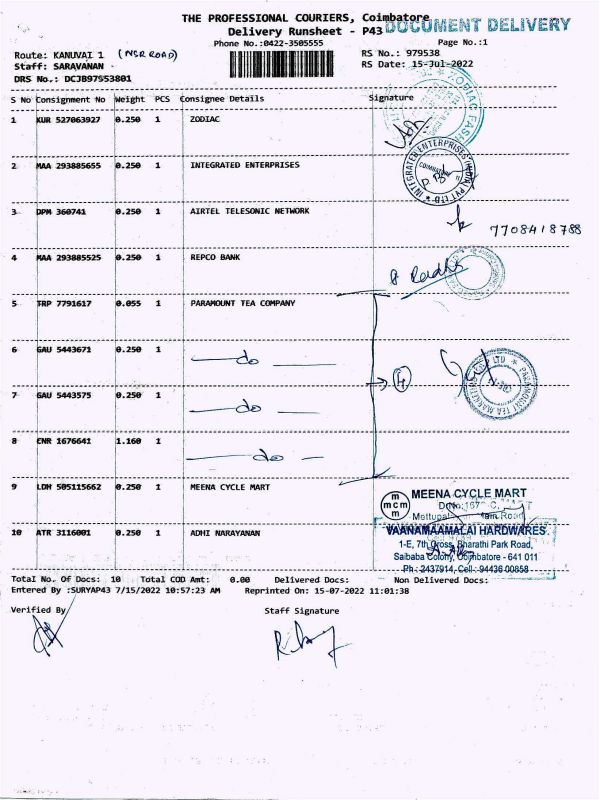 THE PROFESSIONAL COURIERS, Coimbatore
Delivery Runsheet - P43
DOCUMENT DELIVERY
Phone No.:0422-3505555
Page No.:1
Route: KANUVAI 1 (NSR ROAD)
RS No.: 979538
Staff: SARAVANAN -
RS Date: 15-Jul-2022
DRS No.: DCJB97953801
S No Consignment No Weight PCS Consignee Details Signature
1 KUR 527063927 0.250 1 ZODIAC
2 MAA 293885655 0.250 1 INTEGRATED ENTERPRISES
3 DPM 360741 0.250 1 AIRTEL TELESONIC NETWORK
7708418788
4 MAA 293885525 0.250 1 REPCO BANK
5 TRP 7791617 0.055 1 PARAMOUNT TEA COMPANY
6 GAU 5443671 0.250 1 —do—
7 GAU 5443575 0.250 1 —do—
8 CNR 1676641 1.160 1 —do—
9 LDH 505115662 0.250 1 MEENA CYCLE MART
m mcm m
MEENA CYCLE MART
10 ATR 3116001 0.250 1 ADHI NARAYANAN
VAANAMAAMALAI HARDWARES
1-E, 7th Cross, Bharathi Park Road,
Saibaba Colony, Coimbatore - 641 011
Ph : 2437914, Cell : 94436 00858
Total No. Of Docs: 10 Total COD Amt: 0.00 Delivered Docs: Non Delivered Docs:
Entered By :SURYAP43 7/15/2022 10:57:23 AM Reprinted On: 15-07-2022 11:01:38
Verified By Staff Signature